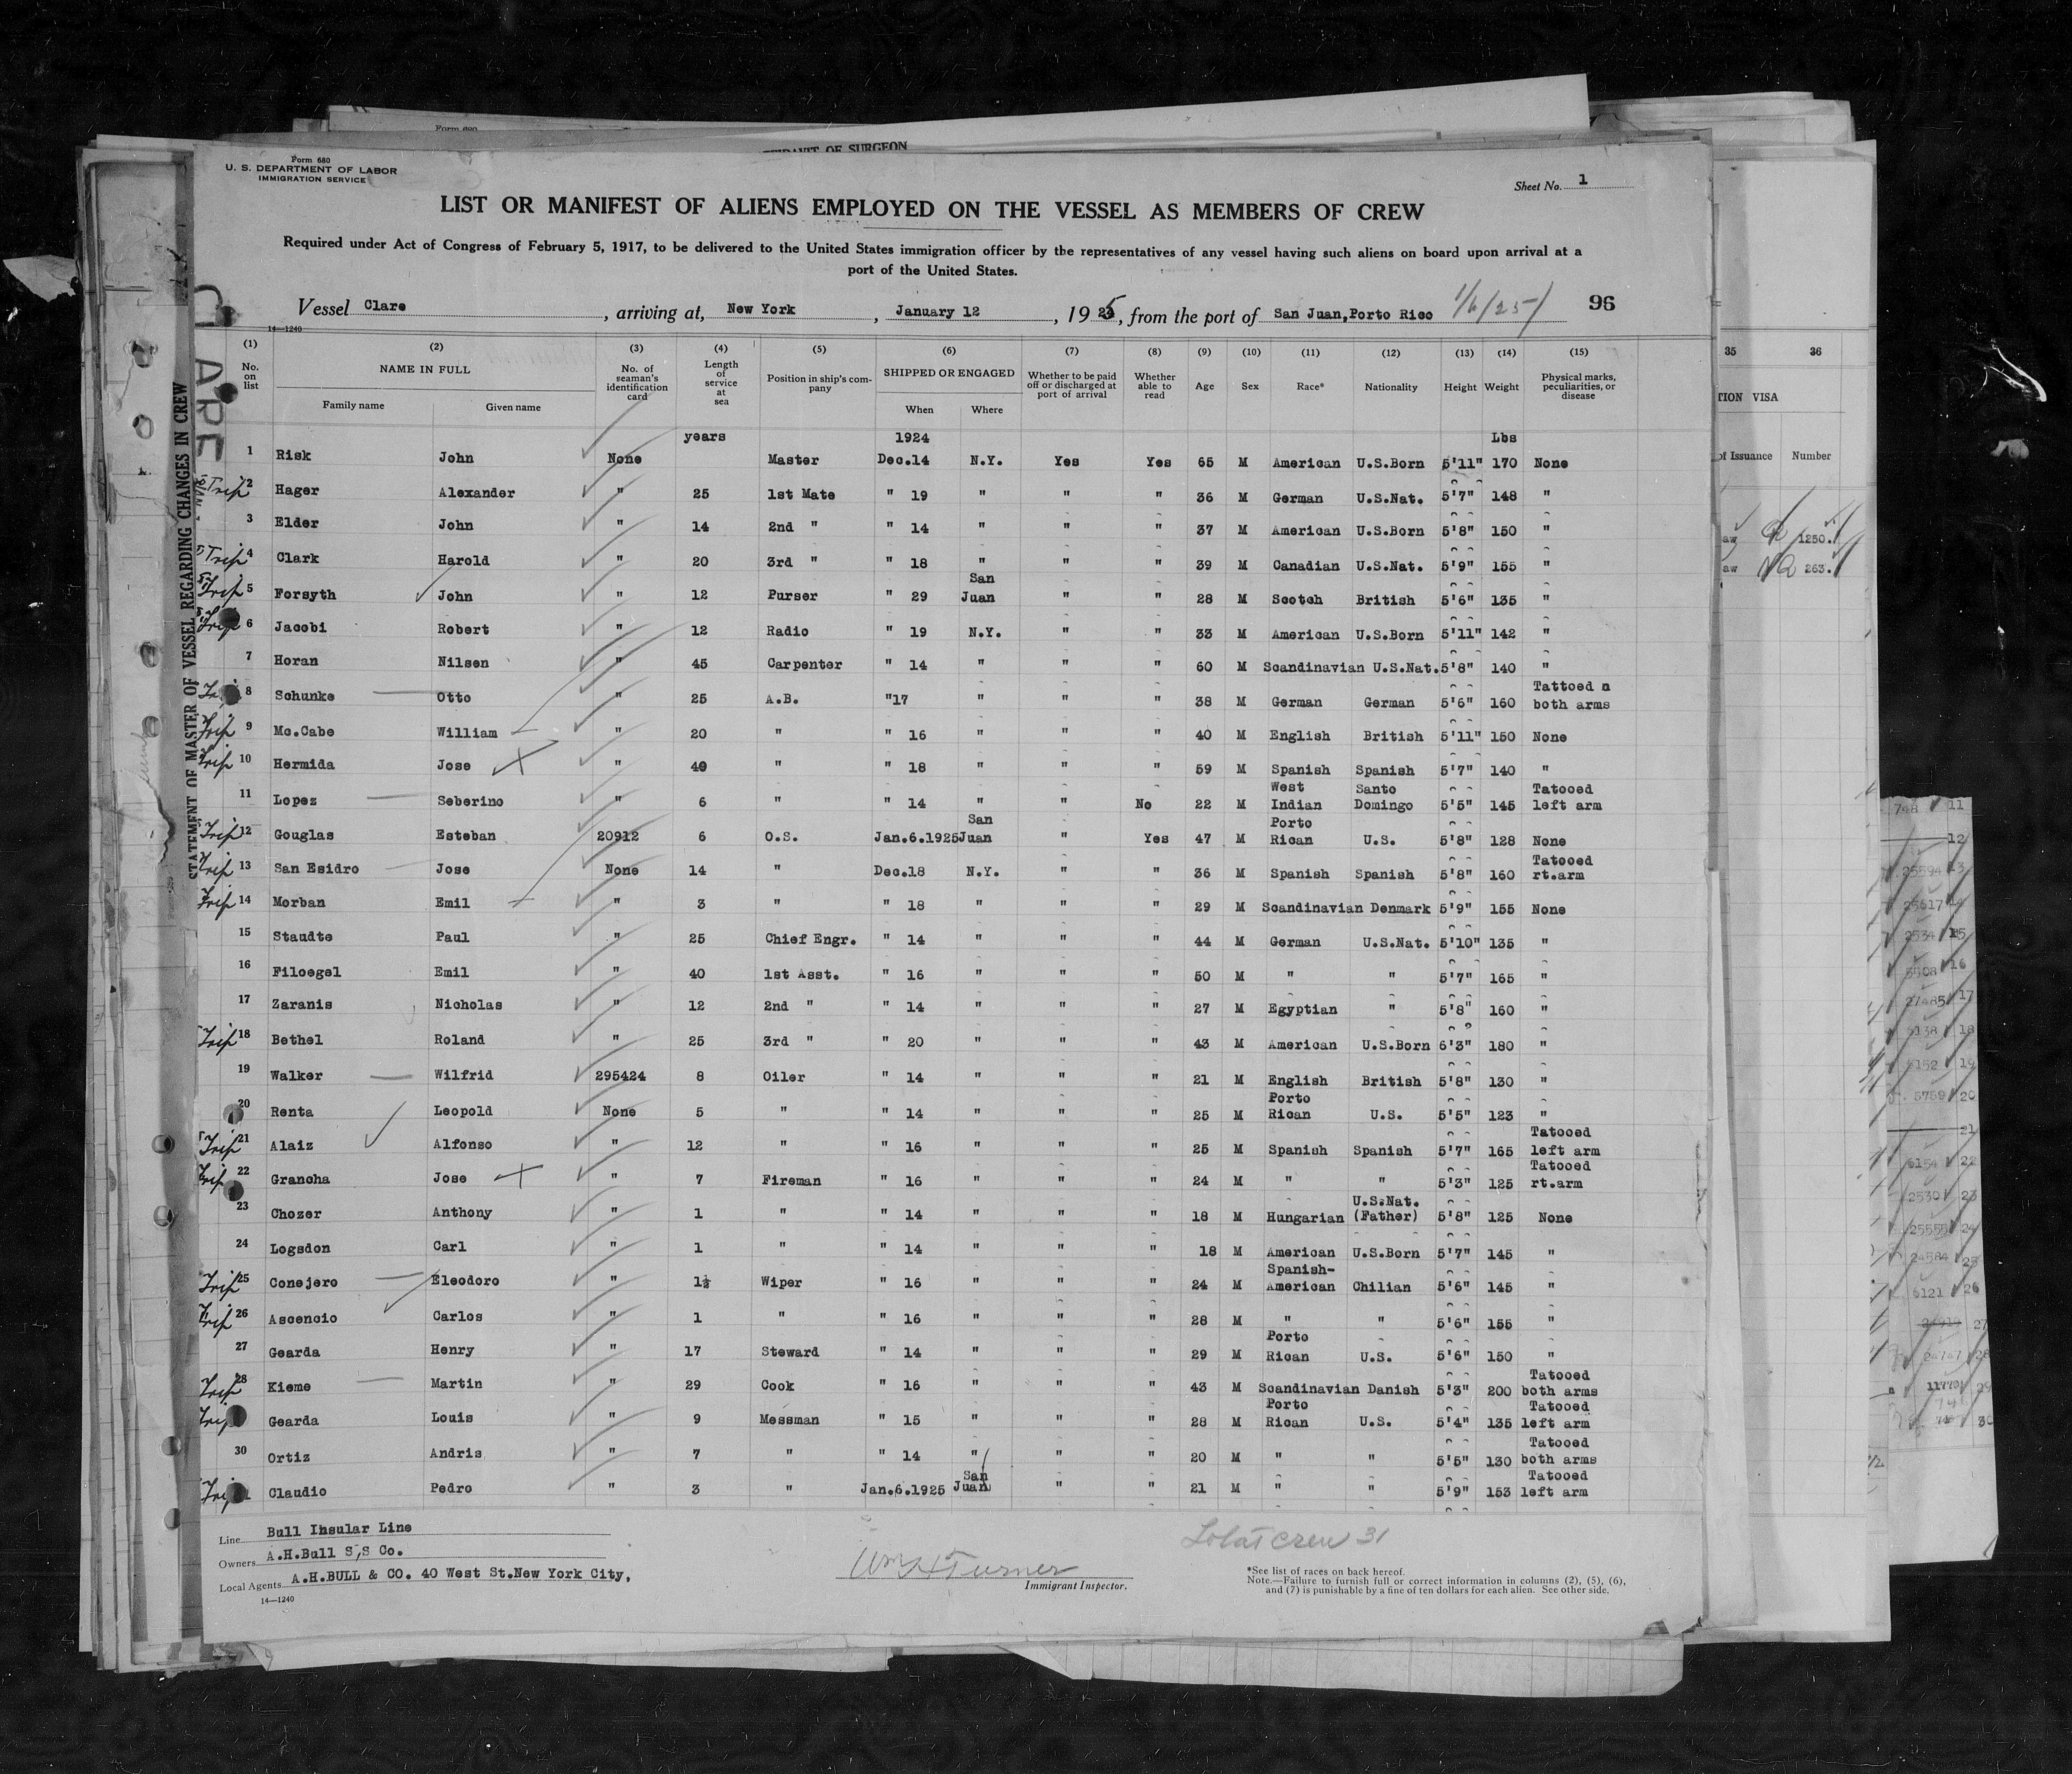 Form 680
U. S. DEPARTMENT OF LABOR
IMMIGRATION SERVICE
Sheet No. 1
LIST OR MANIFEST OF ALIENS EMPLOYED ON THE VESSEL AS MEMBERS OF CREW
Required under Act of Congress of February 5, 1917, to be delivered to the United States immigration officer by the representatives of any vessel having such aliens on board upon arrival at a
port of the United States.
Vessel Clare, arriving at, New York, January 12, 1925, from the port of San Juan,Porto Rico 1/6/25 96
14—1240
(1) (2) (3) (4) (5) (6) (7) (8) (9) (10) (11) (12) (13) (14) (15)
No. on list NAME IN FULL Family name Given name No. of seaman's identification card Length of service at sea Position in ship's company SHIPPED OR ENGAGED When Where Whether to be paid off or discharged at port of arrival Whether able to read Age Sex Race* Nationality Height Weight Physical marks, peculiarities, or disease
years 1924 Lbs
1 Risk John None Master Dec.14 N.Y. Yes Yes 65 M American U.S.Born 5'11" 170 None
Trip 2 Hager Alexander " 25 1st Mate " 19 " " " 36 M German U.S.Nat. 5'7" 148 "
3 Elder John " 14 2nd " " 14 " " " 37 M American U.S.Born 5'8" 150 "
Trip 4 Clark Harold " 20 3rd " " 18 " " " 39 M Canadian U.S.Nat. 5'9" 155 "
Trip 5 Forsyth John " 12 Purser " 29 San Juan " " 28 M Scotch British 5'6" 135 "
Trip 6 Jacobi Robert " 12 Radio " 19 N.Y. " " 33 M American U.S.Born 5'11" 142 "
7 Horan Nilsen " 45 Carpenter " 14 " " " 60 M Scandinavian U.S.Nat. 5'8" 140 "
8 Schunke Otto " 25 A.B. "17 " " " 38 M German German 5'6" 160 Tattoed n both arms
Trip 9 Mc.Cabe William " 20 " " 16 " " " 40 M English British 5'11" 150 None
Trip 10 Hermida Jose " 40 " " 18 " " " 59 M Spanish Spanish 5'7" 140 "
11 Lopez Seberino " 6 " " 14 " " No 22 M West Indian Santo Domingo 5'5" 145 Tatooed left arm
Trip 12 Gouglas Esteban 20912 6 O.S. Jan.6.1925 San Juan " Yes 47 M Porto Rican U.S. 5'8" 128 None
Trip 13 San Esidro Jose None 14 " Dec.18 N.Y. " " 36 M Spanish Spanish 5'8" 160 Tatooed rt.arm
Trip 14 Morban Emil " 3 " " 18 " " " 29 M Scandinavian Denmark 5'9" 155 None
15 Staudte Paul " 25 Chief Engr. " 14 " " " 44 M German U.S.Nat. 5'10" 135 "
16 Filoegel Emil " 40 1st Asst. " 16 " " " 50 M " " 5'7" 165 "
17 Zaranis Nicholas " 12 2nd " " 14 " " " 27 M Egyptian " 5'8" 160 "
Trip 18 Bethel Roland " 25 3rd " " 20 " " " 43 M American U.S.Born 6'3" 180 "
19 Walker Wilfrid 295424 8 Oiler " 14 " " " 21 M English British 5'8" 130 "
20 Renta Leopold None 5 " " 14 " " " 25 M Porto Rican U.S. 5'5" 123 "
Trip 21 Alaiz Alfonso " 12 " " 16 " " " 25 M Spanish Spanish 5'7" 165 Tatooed left arm
Trip 22 Grancha Jose " 7 Fireman " 16 " " " 24 M " " 5'3" 125 Tatooed rt.arm
23 Chozer Anthony " 1 " " 14 " " " 18 M Hungarian U.S.Nat. (Father) 5'8" 125 None
24 Logsdon Carl " 1 " " 14 " " " 18 M American U.S.Born 5'7" 145 "
Trip 25 Conejero Eleodoro " 1½ Wiper " 16 " " " 24 M Spanish-American Chilian 5'6" 145 "
Trip 26 Ascencio Carlos " 1 " " 16 " " " 28 M " " 5'6" 155 "
27 Gearda Henry " 17 Steward " 14 " " " 29 M Porto Rican U.S. 5'6" 150 "
Trip 28 Kieme Martin " 29 Cook " 16 " " " 43 M Scandinavian Danish 5'3" 200 Tatooed both arms
Trip Gearda Louis " 9 Messman " 15 " " " 28 M Porto Rican U.S. 5'4" 135 Tatooed left arm
30 Ortiz Andris " 7 " " 14 " " " 20 M " " 5'5" 130 Tatooed both arms
Claudio Pedro " 3 " Jan.6.1925 San Juan " " 21 M " " 5'9" 153 Tatooed left arm
Line Bull Insular Line
Owners A.H.Bull S,S Co.
Local Agents A.H.BULL & CO. 40 West St.New York City,
14—1240
Wm H Turner
Immigrant Inspector.
Total crew 31
*See list of races on back hereof.
Note.—Failure to furnish full or correct information in columns (2), (5), (6),
and (7) is punishable by a fine of ten dollars for each alien. See other side.
STATEMENT OF MASTER OF VESSEL REGARDING CHANGES IN CREW
CLARE
OF SURGEON
35 36
TION VISA
of Issuance Number
aw 1250.
aw 263.